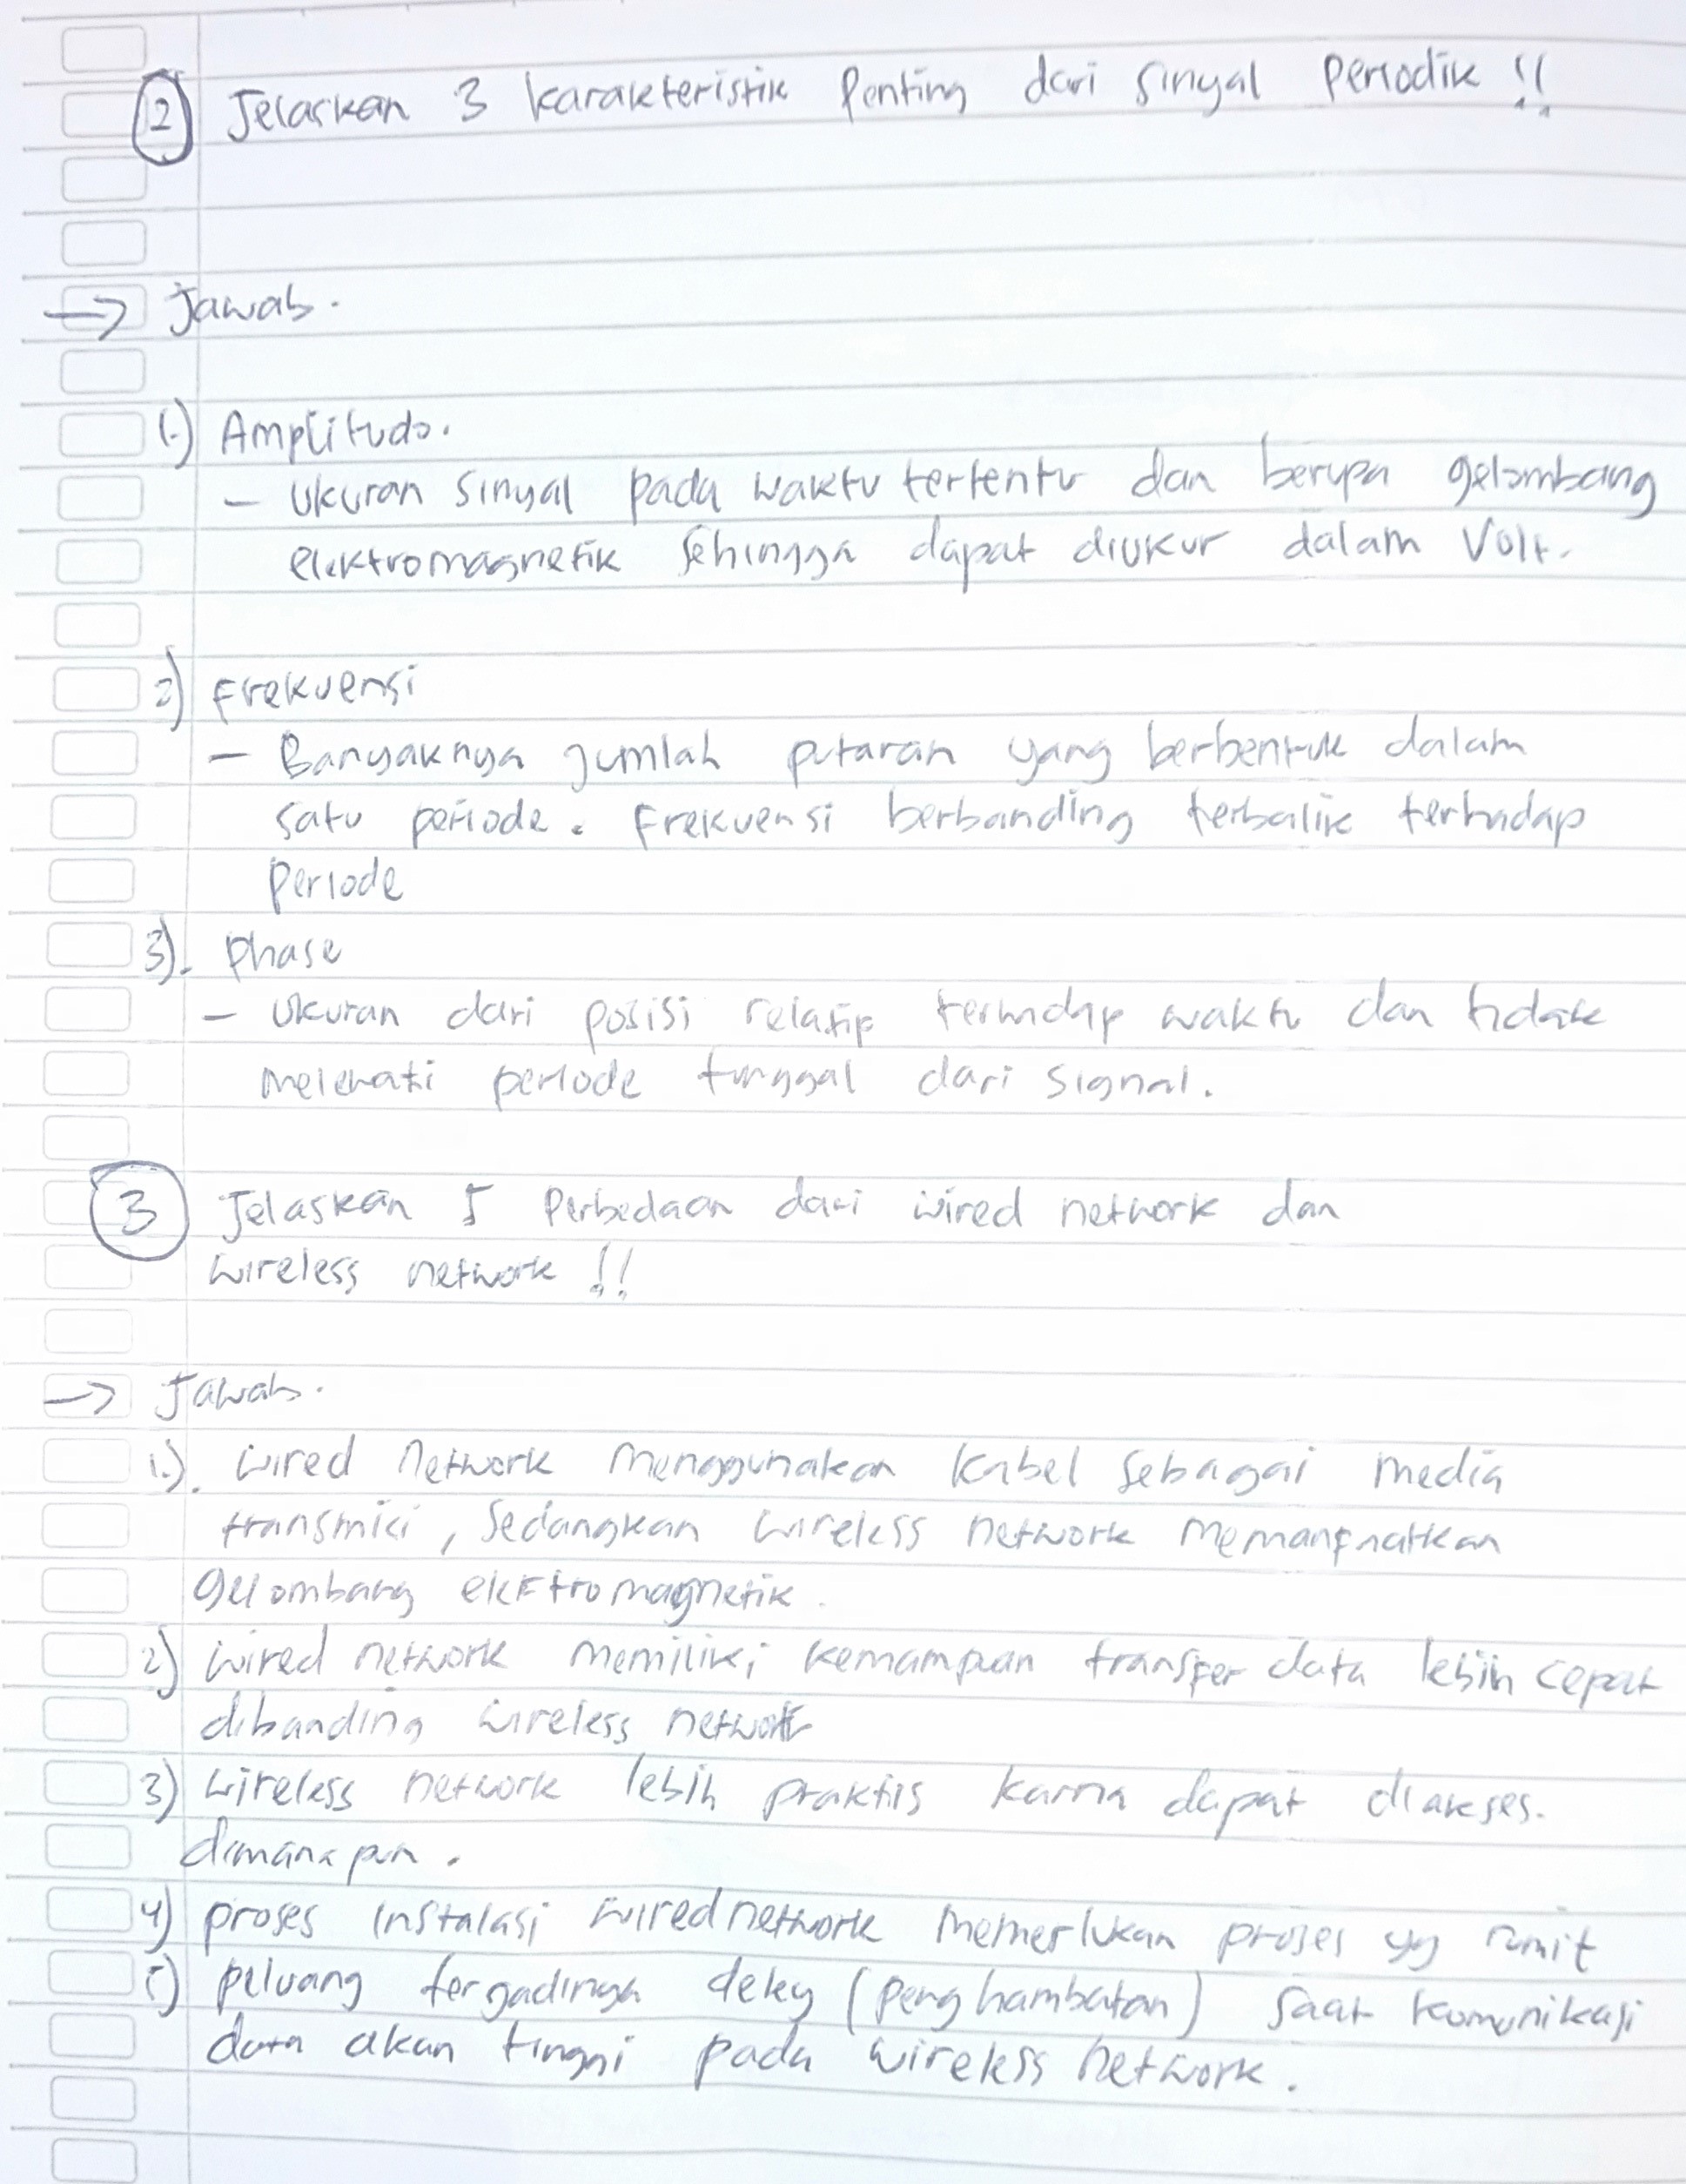 2 Jelaskan 3 karakteristik Penting dari sinyal Periodik !!
→ Jawab.
1.) Amplitudo.
- Ukuran sinyal pada waktu tertentu dan berupa gelombang
elektromagnetik sehingga dapat diukur dalam Volt.
2) Frekuensi
- Banyaknya jumlah putaran yang berbentuk dalam
satu periode. Frekuensi berbanding terbalik terhadap
Periode
3). Phase
- Ukuran dari posisi relatif terhadap waktu dan tidak
melewati periode tunggal dari signal.
3 Jelaskan 5 Perbedaan dari wired network dan
wireless network !!
→ Jawab.
1.). wired Network menggunakan kabel sebagai media
transmisi, Sedangkan wireless network memanfaatkan
gelombang elektromagnetik.
2) wired network memiliki kemampuan transfer data lebih cepat
dibanding wireless network
3) wireless network lebih praktis karna dapat diakses.
dimanapun.
4) proses instalasi wired network memerlukan proses yg rumit
5) peluang tergadinya deley (penghambatan) saat komunikasi
data akan tinggi pada wireless network.